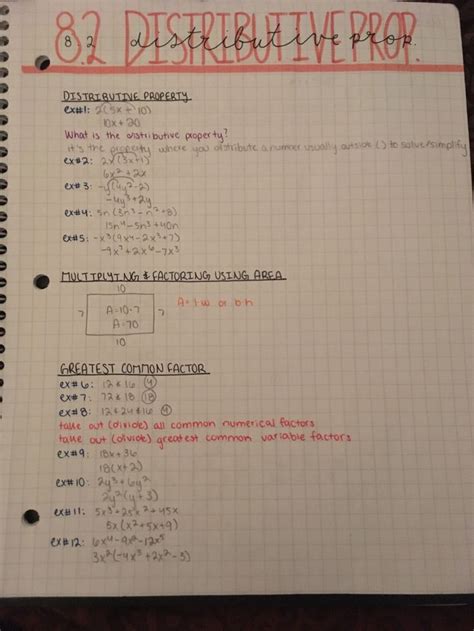 8.2 DISTRIBUTIVE PROP.
8.2 distributive prop.
DISTRIBUTIVE PROPERTY
ex#1: 2(5x + 10)
10x + 20
What is the distributive property?
it's the property where you distribute a number usually outside () to solve/simplify
ex#2: 2x(3x+1)
6x² + 2x
ex#3: -y(4y²-2)
-4y³+2y
ex#4: 5n(3n³-n²+8)
15n⁴-5n³+40n
ex#5: -x³(9x⁴-2x³+7)
-9x⁷+2x⁶-7x³
MULTIPLYING & FACTORING USING AREA
10
7 A=10·7 7
A=70
10
A=l·w or b·h
GREATEST COMMON FACTOR
ex#6: 12 & 16 4
ex#7: 72 & 18 18
ex#8: 12 & 24 & 16 4
take out (divide) all common numerical factors
take out (divide) greatest common variable factors
ex#9: 18x+36
18(x+2)
ex#10: 2y³+6y²
2y²(y+3)
ex#11: 5x³+25x²+45x
5x(x²+5x+9)
ex#12: 6x⁴-9x²-12x⁵
3x²(-4x³+2x²-3)